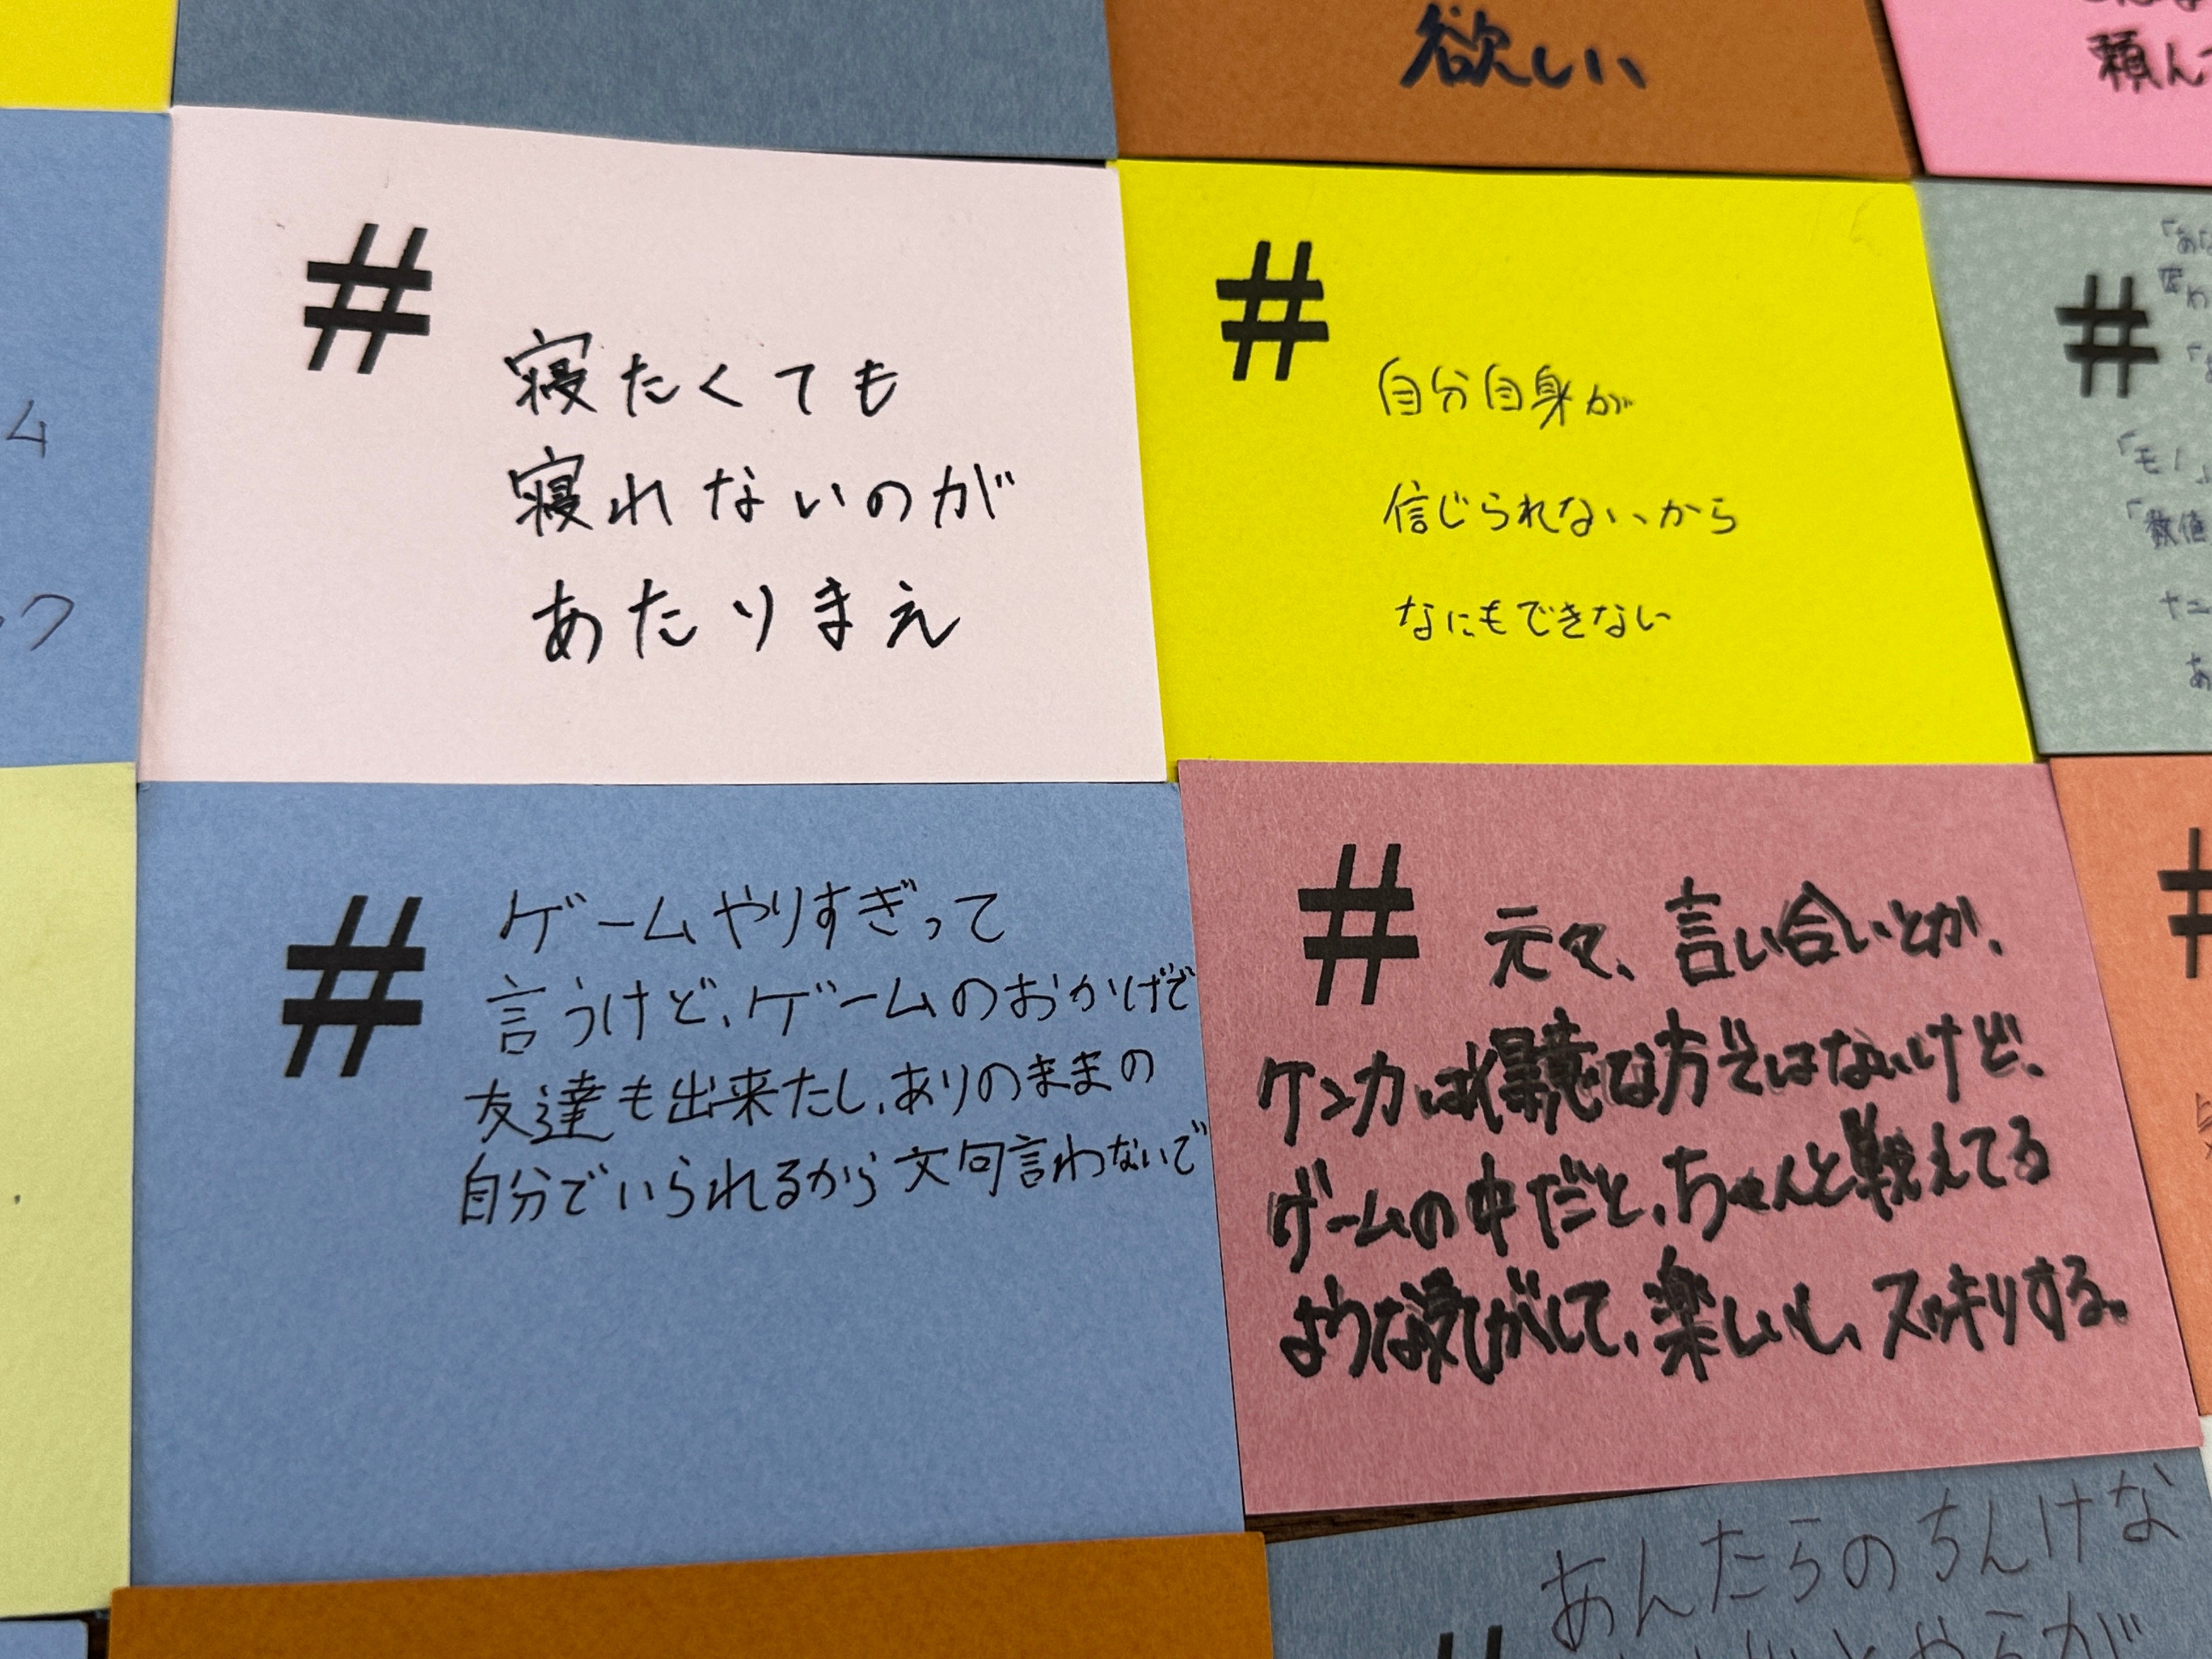 欲しい
頼ん
#
寝たくても
寝れないのが
あたりまえ
#
自分自身が
信じられないから
なにもできない
#
「モノ
「数値
ム
ク
#
ゲームやりすぎって
言うけど、ゲームのおかげで
友達も出来たし、ありのままの
自分でいられるから文句言わないで
#
元々、言い合いとか、
ケンカは得意な方ではないけど、
ゲームの中だと、ちゃんと戦えてる
ような気がして、楽しいし、スッキリする。
#
あんたらのちんけな
#